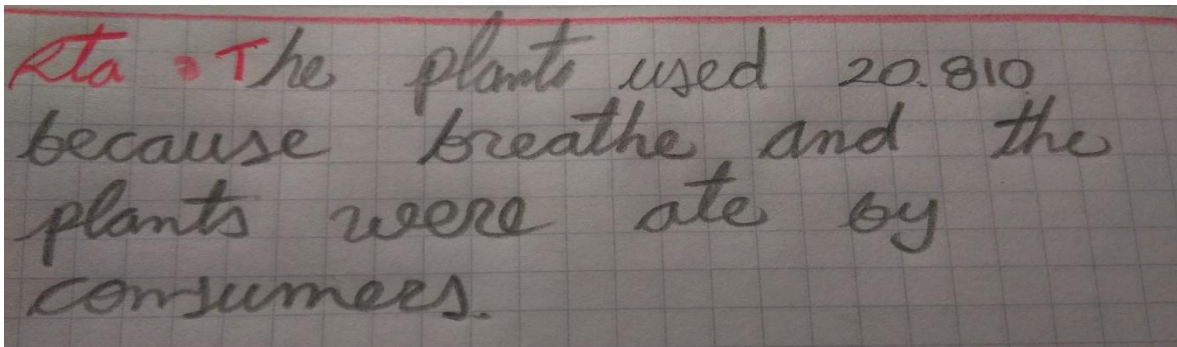 Rta • The plants used 20.810
because breathe and the
plants were ate by
consumers.